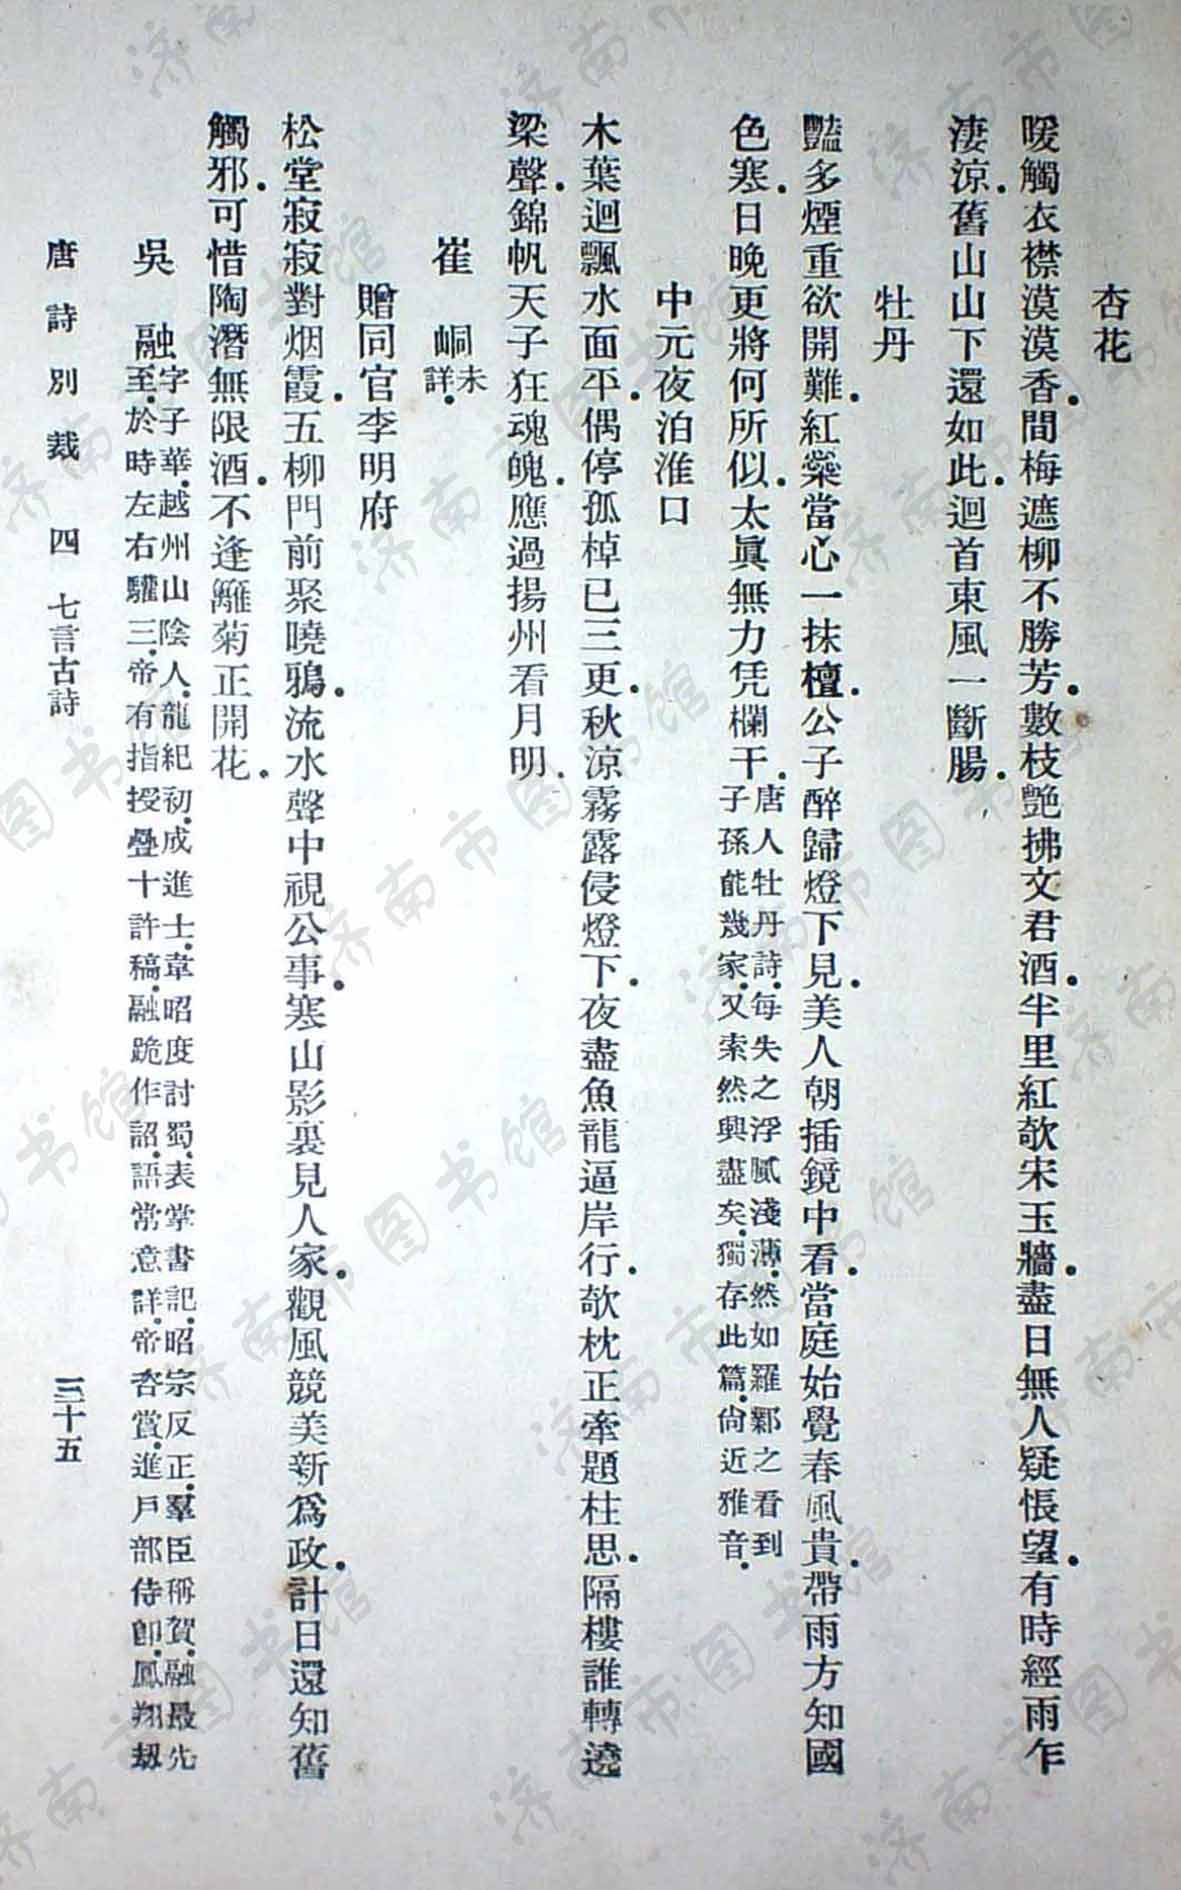 杏花
暖觸衣襟漠漠香．間梅遮柳不勝芳．數枝艶拂文君酒．半里紅欹宋玉牆．盡日無人疑悵望．有時經雨乍
淒涼．舊山山下還如此．迴首東風一斷腸．
牡丹
豔多煙重欲開難．紅蘂當心一抹檀．公子醉歸燈下見．美人朝插鏡中看．當庭始覺春風貴．帶雨方知國
色寒．日晚更將何所似．太眞無力凭欄干．唐人牡丹詩．每失之浮膩淺薄．然如羅鄴之看到
子孫能幾家．又索然興盡矣．獨存此篇．尙近雅音．
中元夜泊淮口
木葉迴飄水面平．偶停孤棹已三更．秋涼霧露侵燈下．夜盡魚龍逼岸行．欹枕正牽題柱思．隔樓誰轉遶
梁聲．錦帆天子狂魂魄．應過揚州看月明．
崔峒未
詳．
贈同官李明府
松堂寂寂對烟霞．五柳門前聚曉鴉．流水聲中視公事．寒山影裏見人家．觀風競美新爲政．計日還知舊
觸邪．可惜陶潛無限酒．不逢籬菊正開花．
吳融字子華．越州山陰人．龍紀初．成進士．韋昭度討蜀．表掌書記．昭宗反正．羣臣稱賀．融最先
至．於時左右驩三．帝有指授疊十許稿．融跪作詔．語當意詳．帝咨賞．進戶部侍郎．鳳翔劫
唐詩別裁 四 七言古詩 三十五
济南市图书馆